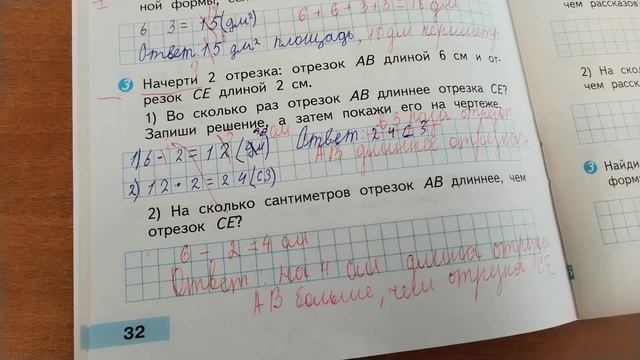 ной формы, если
6 · 3 = 15 (дм²) 6 + 6 + 3 + 3 = 18 дм
Ответ 15 дм² площадь, 18 дм периметр.
3 Начерти 2 отрезка: отрезок АВ длиной 6 см и от-
резок СЕ длиной 2 см.
1) Во сколько раз отрезок АВ длиннее отрезка СЕ?
Запиши решение, а затем покажи его на чертеже.
1) 6 - 2 = 12 Ответ: 24
2) 12 · 2 = 24 (СЗ) АВ длиннее отрезка
2) На сколько сантиметров отрезок АВ длиннее, чем
отрезок СЕ?
6 - 2 = 4 см
Ответ: на 4 см длина отрезка
АВ больше, чем отрезка СЕ
32
чем
рассказов
2) На ско
чем расск
3 Найди
форму